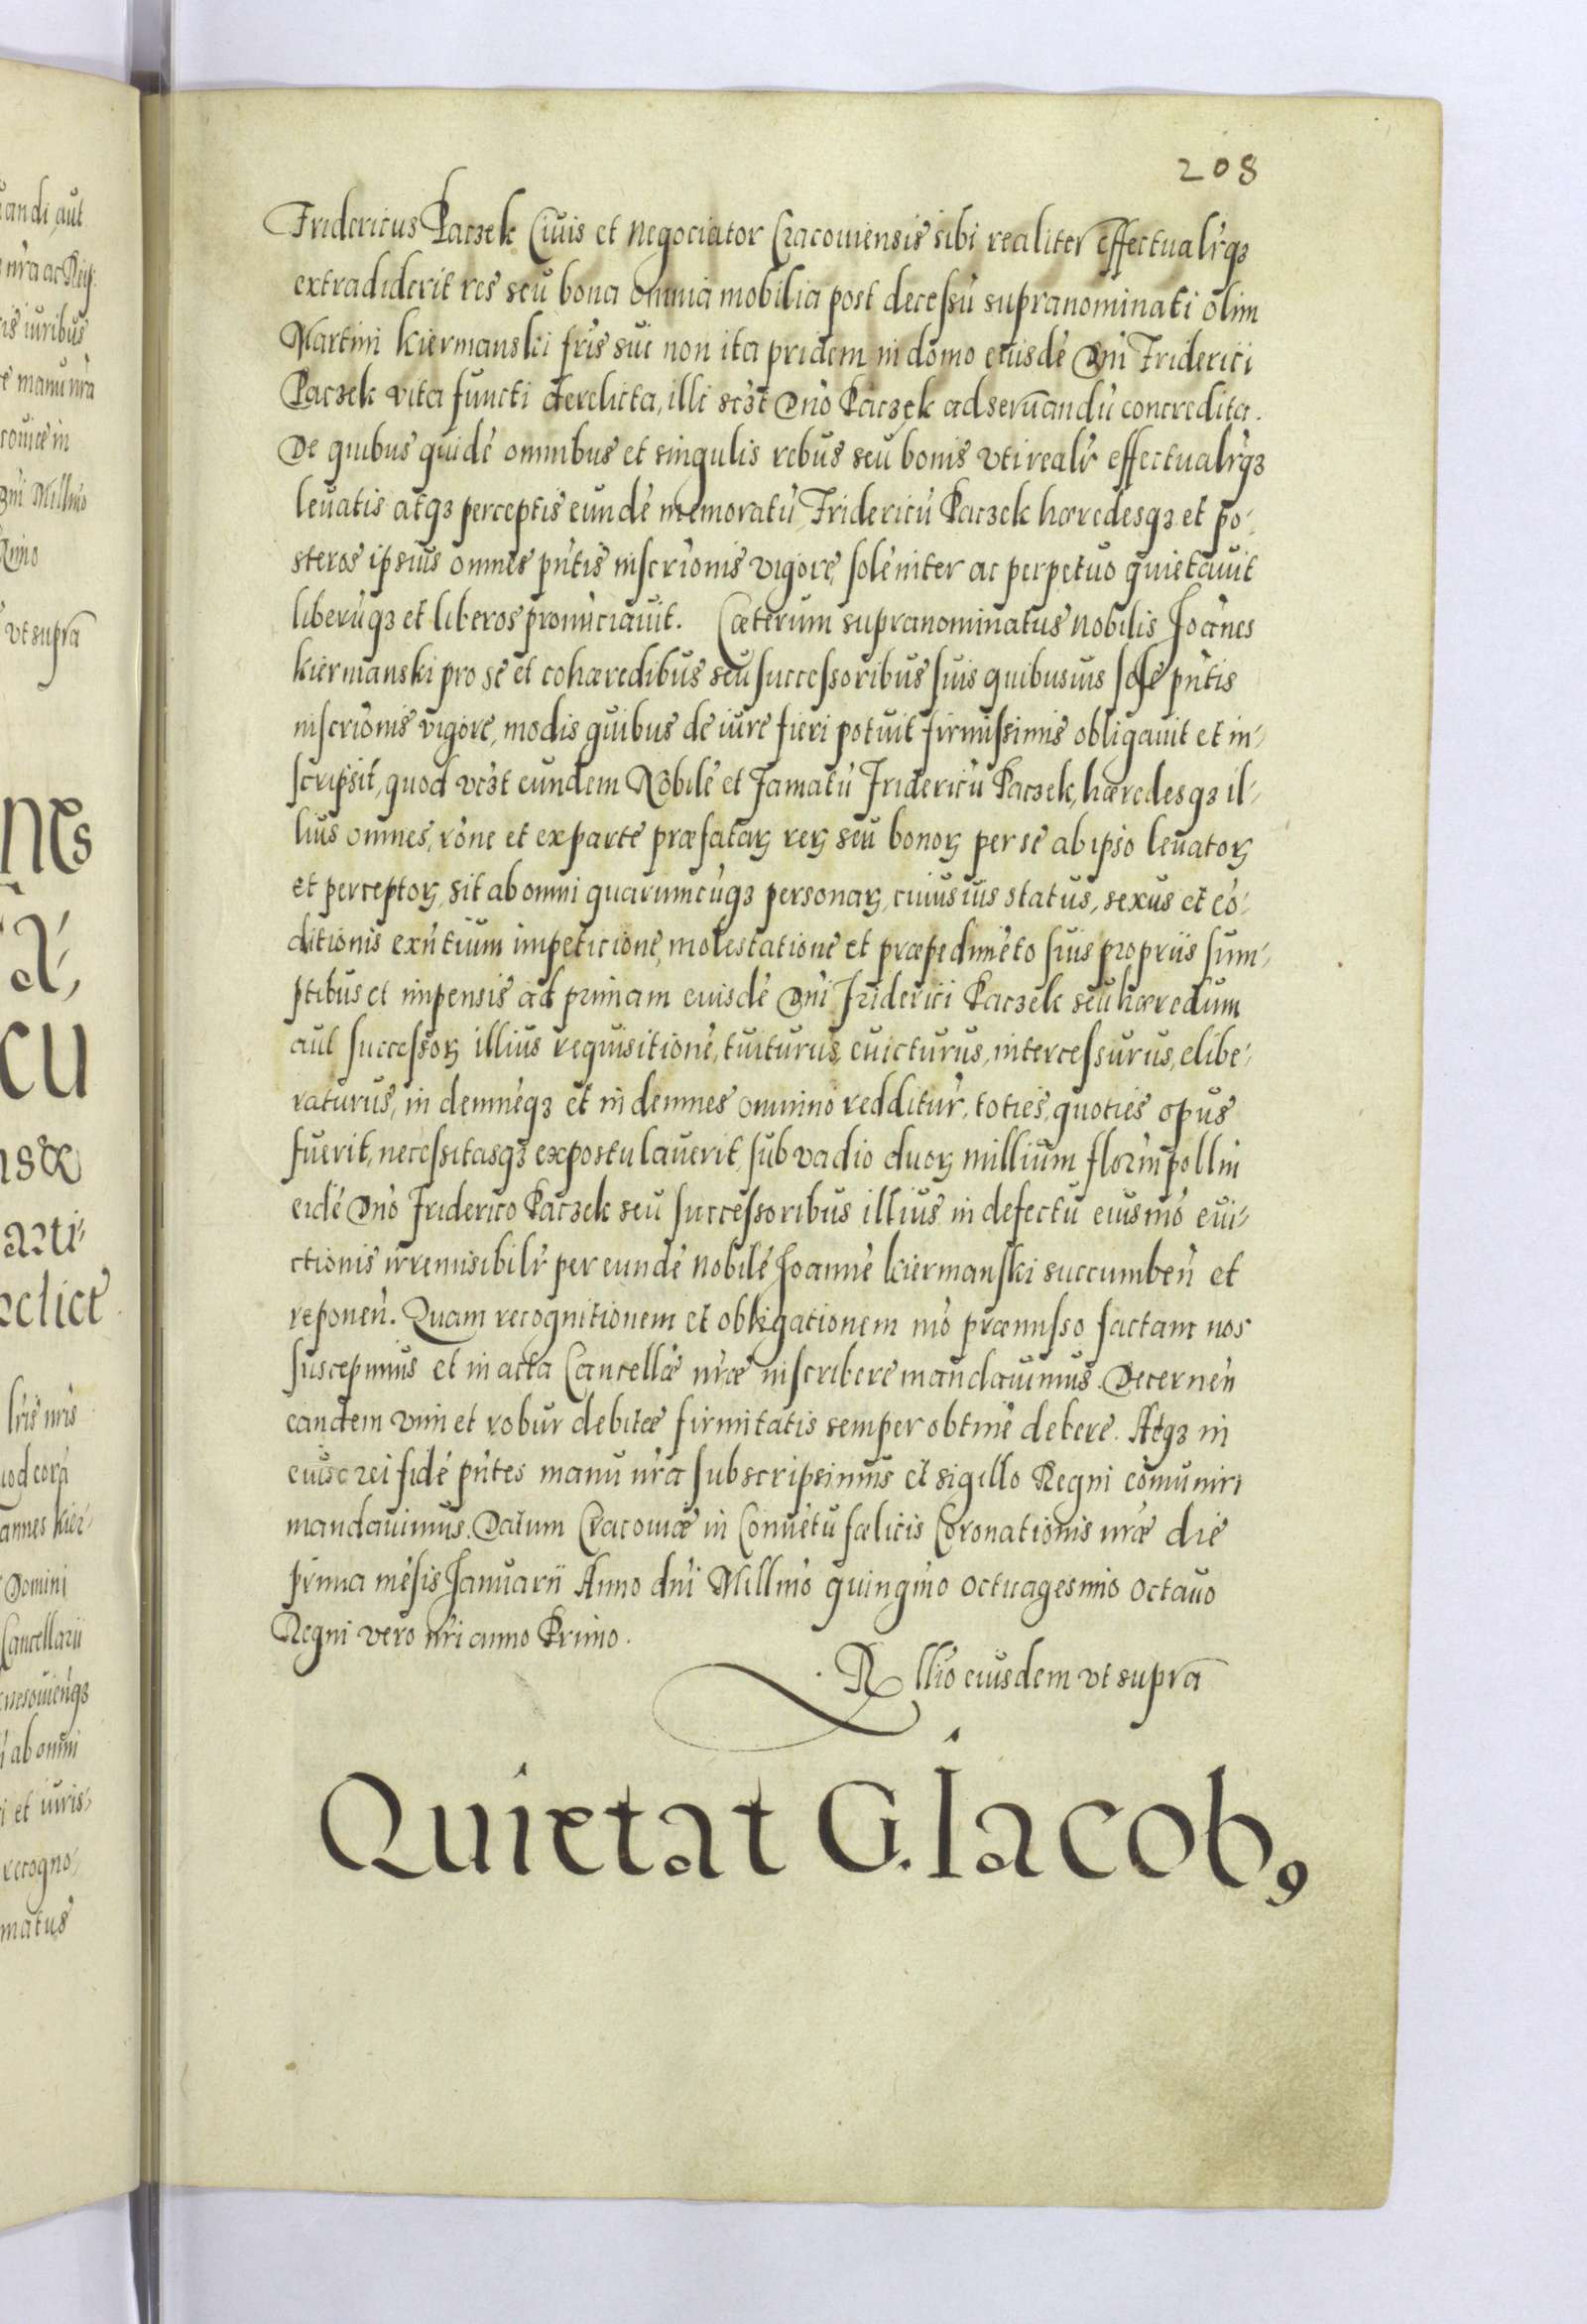 208
Fridericus Paczek Civis et Negociator Cracoviensis sibi realiter effectualr̃qȝ
extradiderit res seu bona omnia mobilia post decessũ supranominati olim
Martini Kiermanski fr̃is sui non ita pridem in domo eiusdẽ Dn̄i Friderici
Paczek vita functi derelicta, illi sczt Dn̄o Paczek adseruandũ concredita.
De quibus quidẽ omnibus et singulis rebus seu bonis vti realr̃ effectualr̃qȝ
levatis atqȝ perceptis eundẽ memoratũ Fridericũ Paczek hæredesqȝ et po-
steros ipsius omnes pñtis inscrĩonis vigore, solẽniter ac perpetuo quietavit
liberũqȝ et liberos pronũciavit. Cæterum supranominatus Nobilis Joãnes
Kiermanski pro se et cohæredibus seu successoribus suis quibusvis sese pñtis
inscrĩonis vigore, modis quibus de iure fieri potuit firmissimis obligavit et in-
scripsit, quod vczt eundem Nobilẽ et Famatũ Fridericũ Paczek, hæredesqȝ il-
lius omnes, rõne et ex parte præfataꝝ reꝝ seu bonoꝝ per se ab ipso levatoꝝ
et perceptoꝝ, sit ab omni quarumcũqȝ personaꝝ, cuiusvis status, sexus et cõ-
ditionis exñtium impeticione, molestatione et præpedimẽto suis propriis sum-
ptibus et impensis ad primam eiusdẽ Dn̄i Friderici Paczek seu hæredum
aut successoꝝ illius requisitionẽ, tuiturus, evicturus, intercessurus, elibe-
raturus, indemnẽqȝ et indemnes omnino redditur̃, toties, quoties opus
fuerit, necessitasqȝ expostulaverit, sub vadio duoꝝ millium flor̃in̄ pollin
eidẽ Dn̄o Friderico Paczek seu successoribus illius in defectu eiusmõ evi-
ctionis irremisibilr̃ per eundẽ Nobilẽ Joannẽ Kiermanski succumbeñ et
reponeñ. Quam recognitionem et obligationem mõ præmisso factam nos
suscepimus et in acta Cancellæ nr̃æ inscribere mandavimus. Decerneñ
eandem vim et robur debitæ firmitatis semper obtinẽ debere. Atqȝ in
euiscerei fidẽ pñtes manu nr̃a subscripsimus et sigillo Regni cõmuniri
mandavimus. Datum Cracoviæ in Convẽtu fælicis Coronationis nr̃æ die
prima mẽsis Januarii Anno dn̄i Millm̃o quingm̃o octuagesimo octavo
Regni vero nr̃i anno Primo.
R llĩo eiusdem vt supra
Quietat G. Jacobꝰ